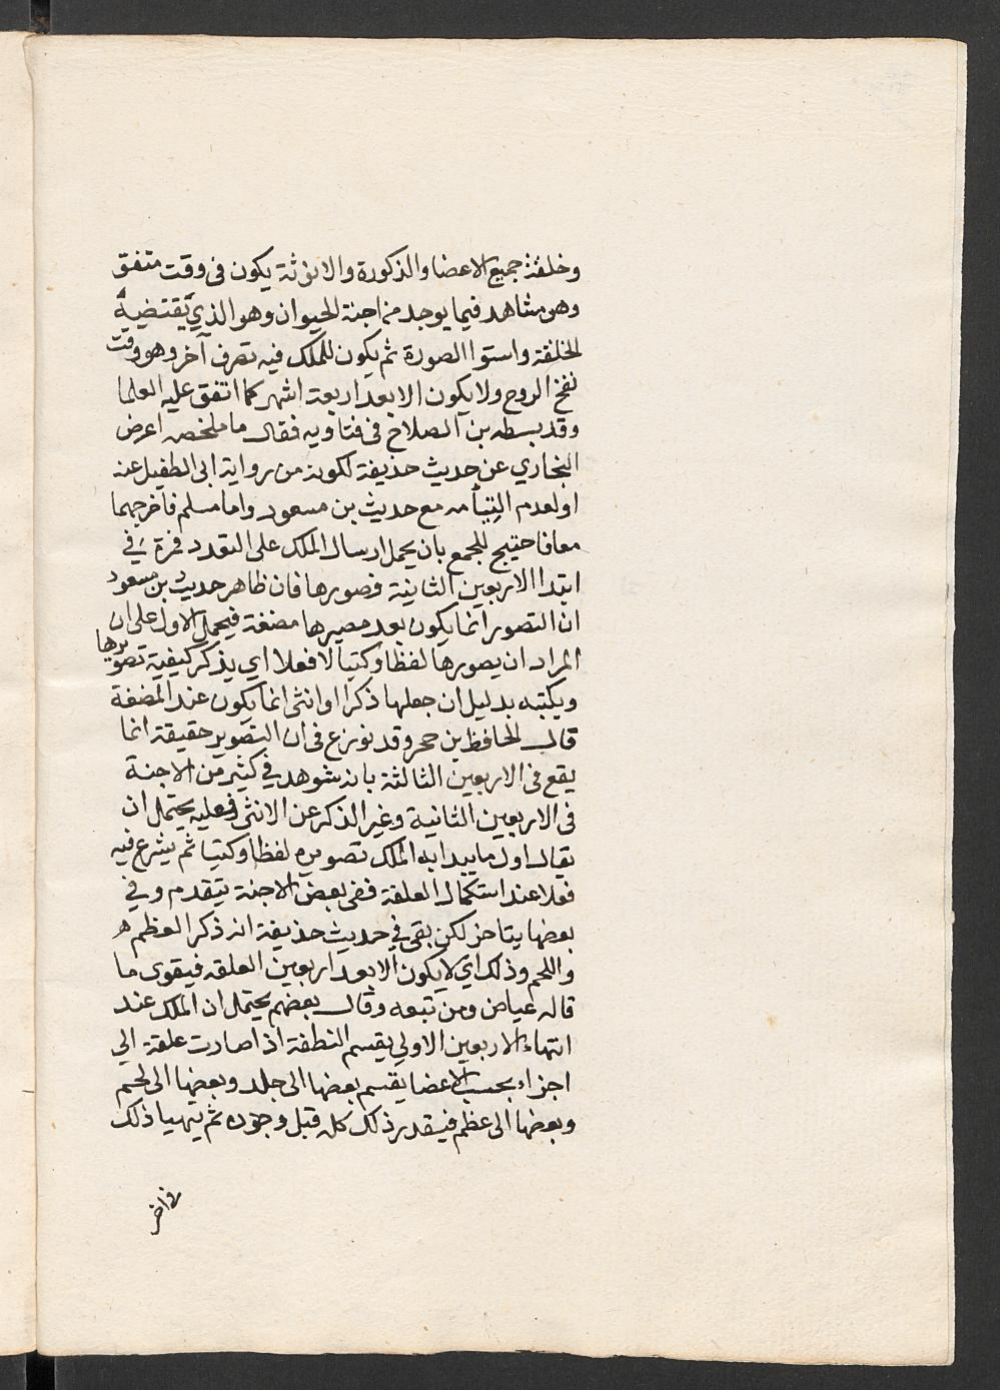 وخلقة جميع الاعضا والذكورة والانوثة يكون فى وقت متفق
وهو مشاهد فيما يوجد من اجنة الحيوان وهو الذي تقتضيه
الخلقة واستوا الصورة ثم يكون للملك فيه تصرف آخر وهو وقت
نفخ الروح ولا يكون الا بعد اربعة اشهر كما اتفق عليه العلما
وقد بسطه بن الصلاح فى فتاويه فقال ما ملخصه اعرض
البخاري عن حديث حذيفة لكونه من رواية ابى الطفيل عنه
او لعدم التيامه مع حديث بن مسعود واما مسلم فاخرجهما
معا فاحتيج للجمع بان يحمل ارسال الملك على التعدد فمرة في
ابتدا الاربعين الثانية فصورها فان ظاهر حديث بن مسعود
ان التصوير انما يكون بعد مصيرها مضغة فيحمل الاول على ان
المراد ان يصورها لفظا وكتبا لا فعلا اي يذكر كيفية تصويرها
ويكتبه بدليل ان جعلها ذكرا او انثى انما يكون عند المضغة
قال الحافظ بن حجر وقد نوزع فى ان التصوير حقيقة انما
يقع فى الاربعين الثالثة بانه شوهد في كثير من الاجنة
فى الاربعين الثانية وغير الذكر عن الانثى فعليه يحتمل ان
يقال اول ما يبدا به الملك تصويره لفظا وكتبا ثم يشرع فيه
فعلا عند استكمال العلقة ففى بعض الاجنة يتقدم وفي
بعضها يتاخر لكن بقى في حديث حذيفة انه ذكر العظم
واللحم وذلك اي لا يكون الا بعد اربعين العلقه فيقوى ما
قاله عياض ومن تبعه وقال بعضهم يحتمل ان الملك عند
انتهاء الاربعين الاولي يقسم النطفة اذا صارت علقة الي
اجزاء بحسب الاعضا يقسم بعضها الى جلد وبعضها الى لحم
وبعضها الى عظم فيقدر ذلك كله قبل وجوده ثم يتهيا ذلك
في اخر